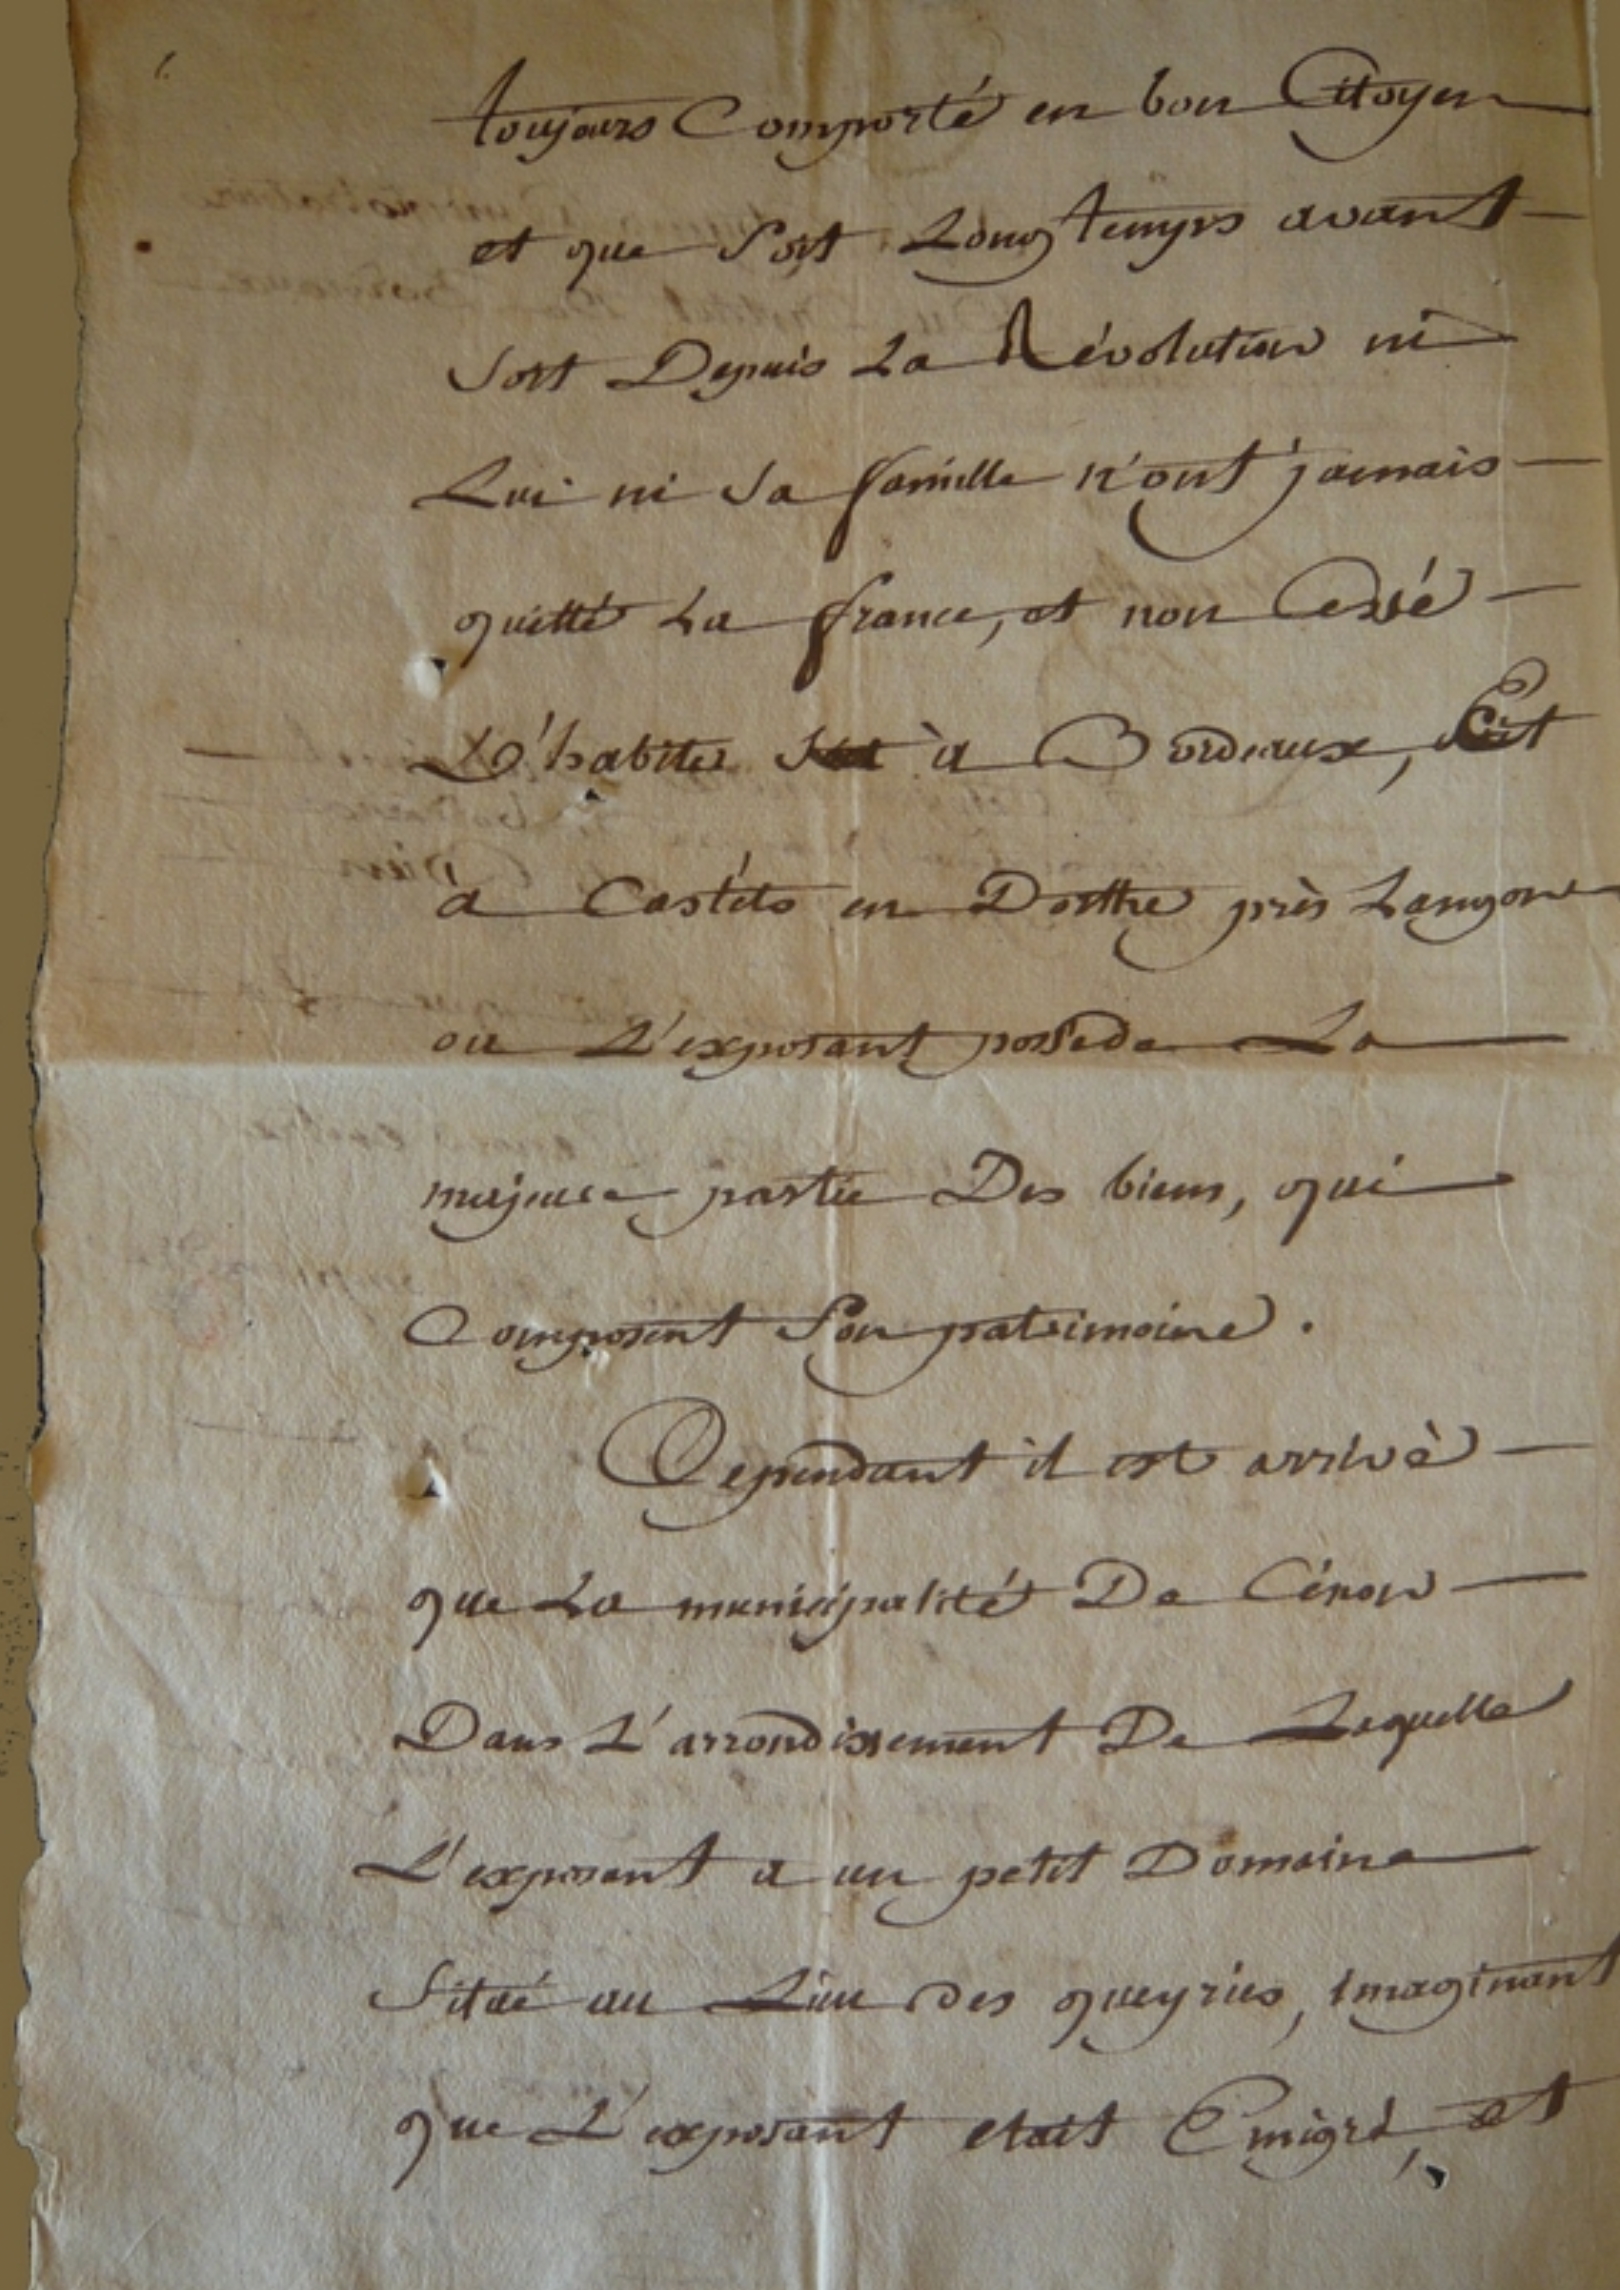 toujours Comporté en bon Citoyen
et que Soit Longtemps avant
Soit Depuis La Révolution ni
Lui ni Sa famille n'ont jamais
quitté La france, et non Cessé
D'habiter à Bordeaux, Et
à Castets en Dorthe près Langon
ou L'exposant possede La
majeure partie Des biens, qui
Composent Son patrimoine.
Cependant il est arrivé
que La municipalité De Cénon
Dans L'arrondissement De Laquelle
L'exposant a un petit Domaine
Situé au Lieu des queyries, imaginant
que L'exposant etait Emigré, et